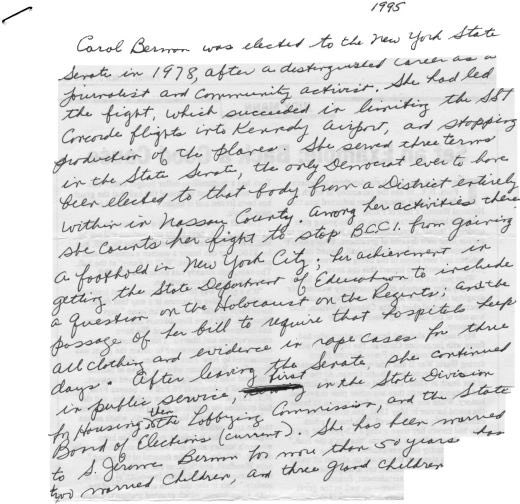 1995
Carol Berman was elected to the New York State
Senate in 1978, after a distinguished career as a
journalist and community activist. She had led
the fight, which succeeded in limiting the SST
Concorde flights into Kennedy Airport, and stopping
production of the planes. She served three terms
in the State Senate, the only Democrat ever to have
been elected to that body from a District entirely
within in Nassau County. Among her activities there
she counts her fight to stop BCCI. from gaining
a foothold in New York City; her achievement in
getting the State Department of Education to include
a question on the Holocaust on the Regents; and the
passage of her bill to require that hospitals keep
all clothing and evidence in rape cases for three
days. After leaving the Senate, she continued
in public service, first in the State Division
for Housing, then the Lobbying Commission, and the State
Board of Elections (current). She has been married
to S. Jerome Berman for more than 50 years has
two married children, and three grand children